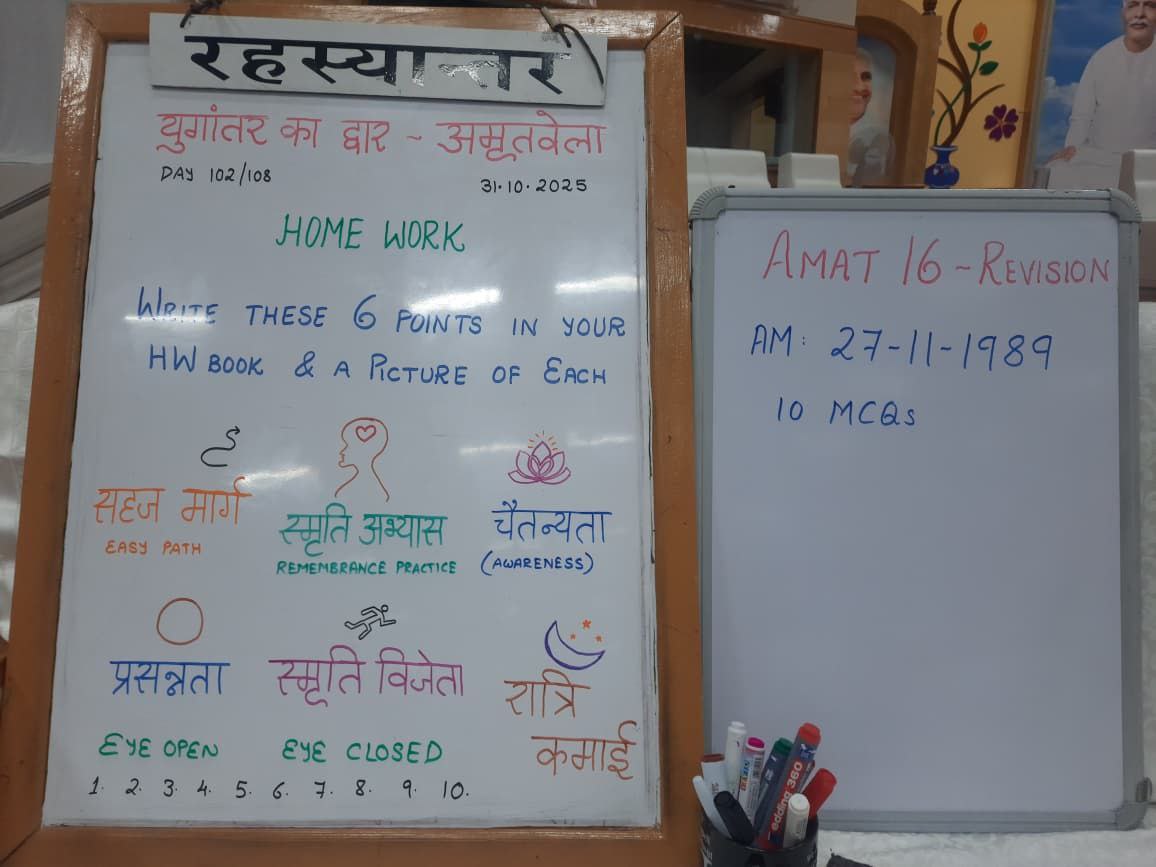 रहस्यान्तर
युगांतर का द्वार - अमृतवेला
DAY 102/108
31.10.2025
HOME WORK
WRITE THESE 6 POINTS IN YOUR
HW BOOK & A PICTURE OF EACH
सहज मार्ग
EASY PATH
स्मृति अभ्यास
REMEMBRANCE PRACTICE
चैतन्यता
(AWARENESS)
प्रसन्नता
स्मृति विजेता
रात्रि
कमाई
EYE OPEN
EYE CLOSED
1. 2. 3. 4. 5. 6. 7. 8. 9. 10.
AMAT 16 - REVISION
AM: 27-11-1989
10 MCQs
edding 360